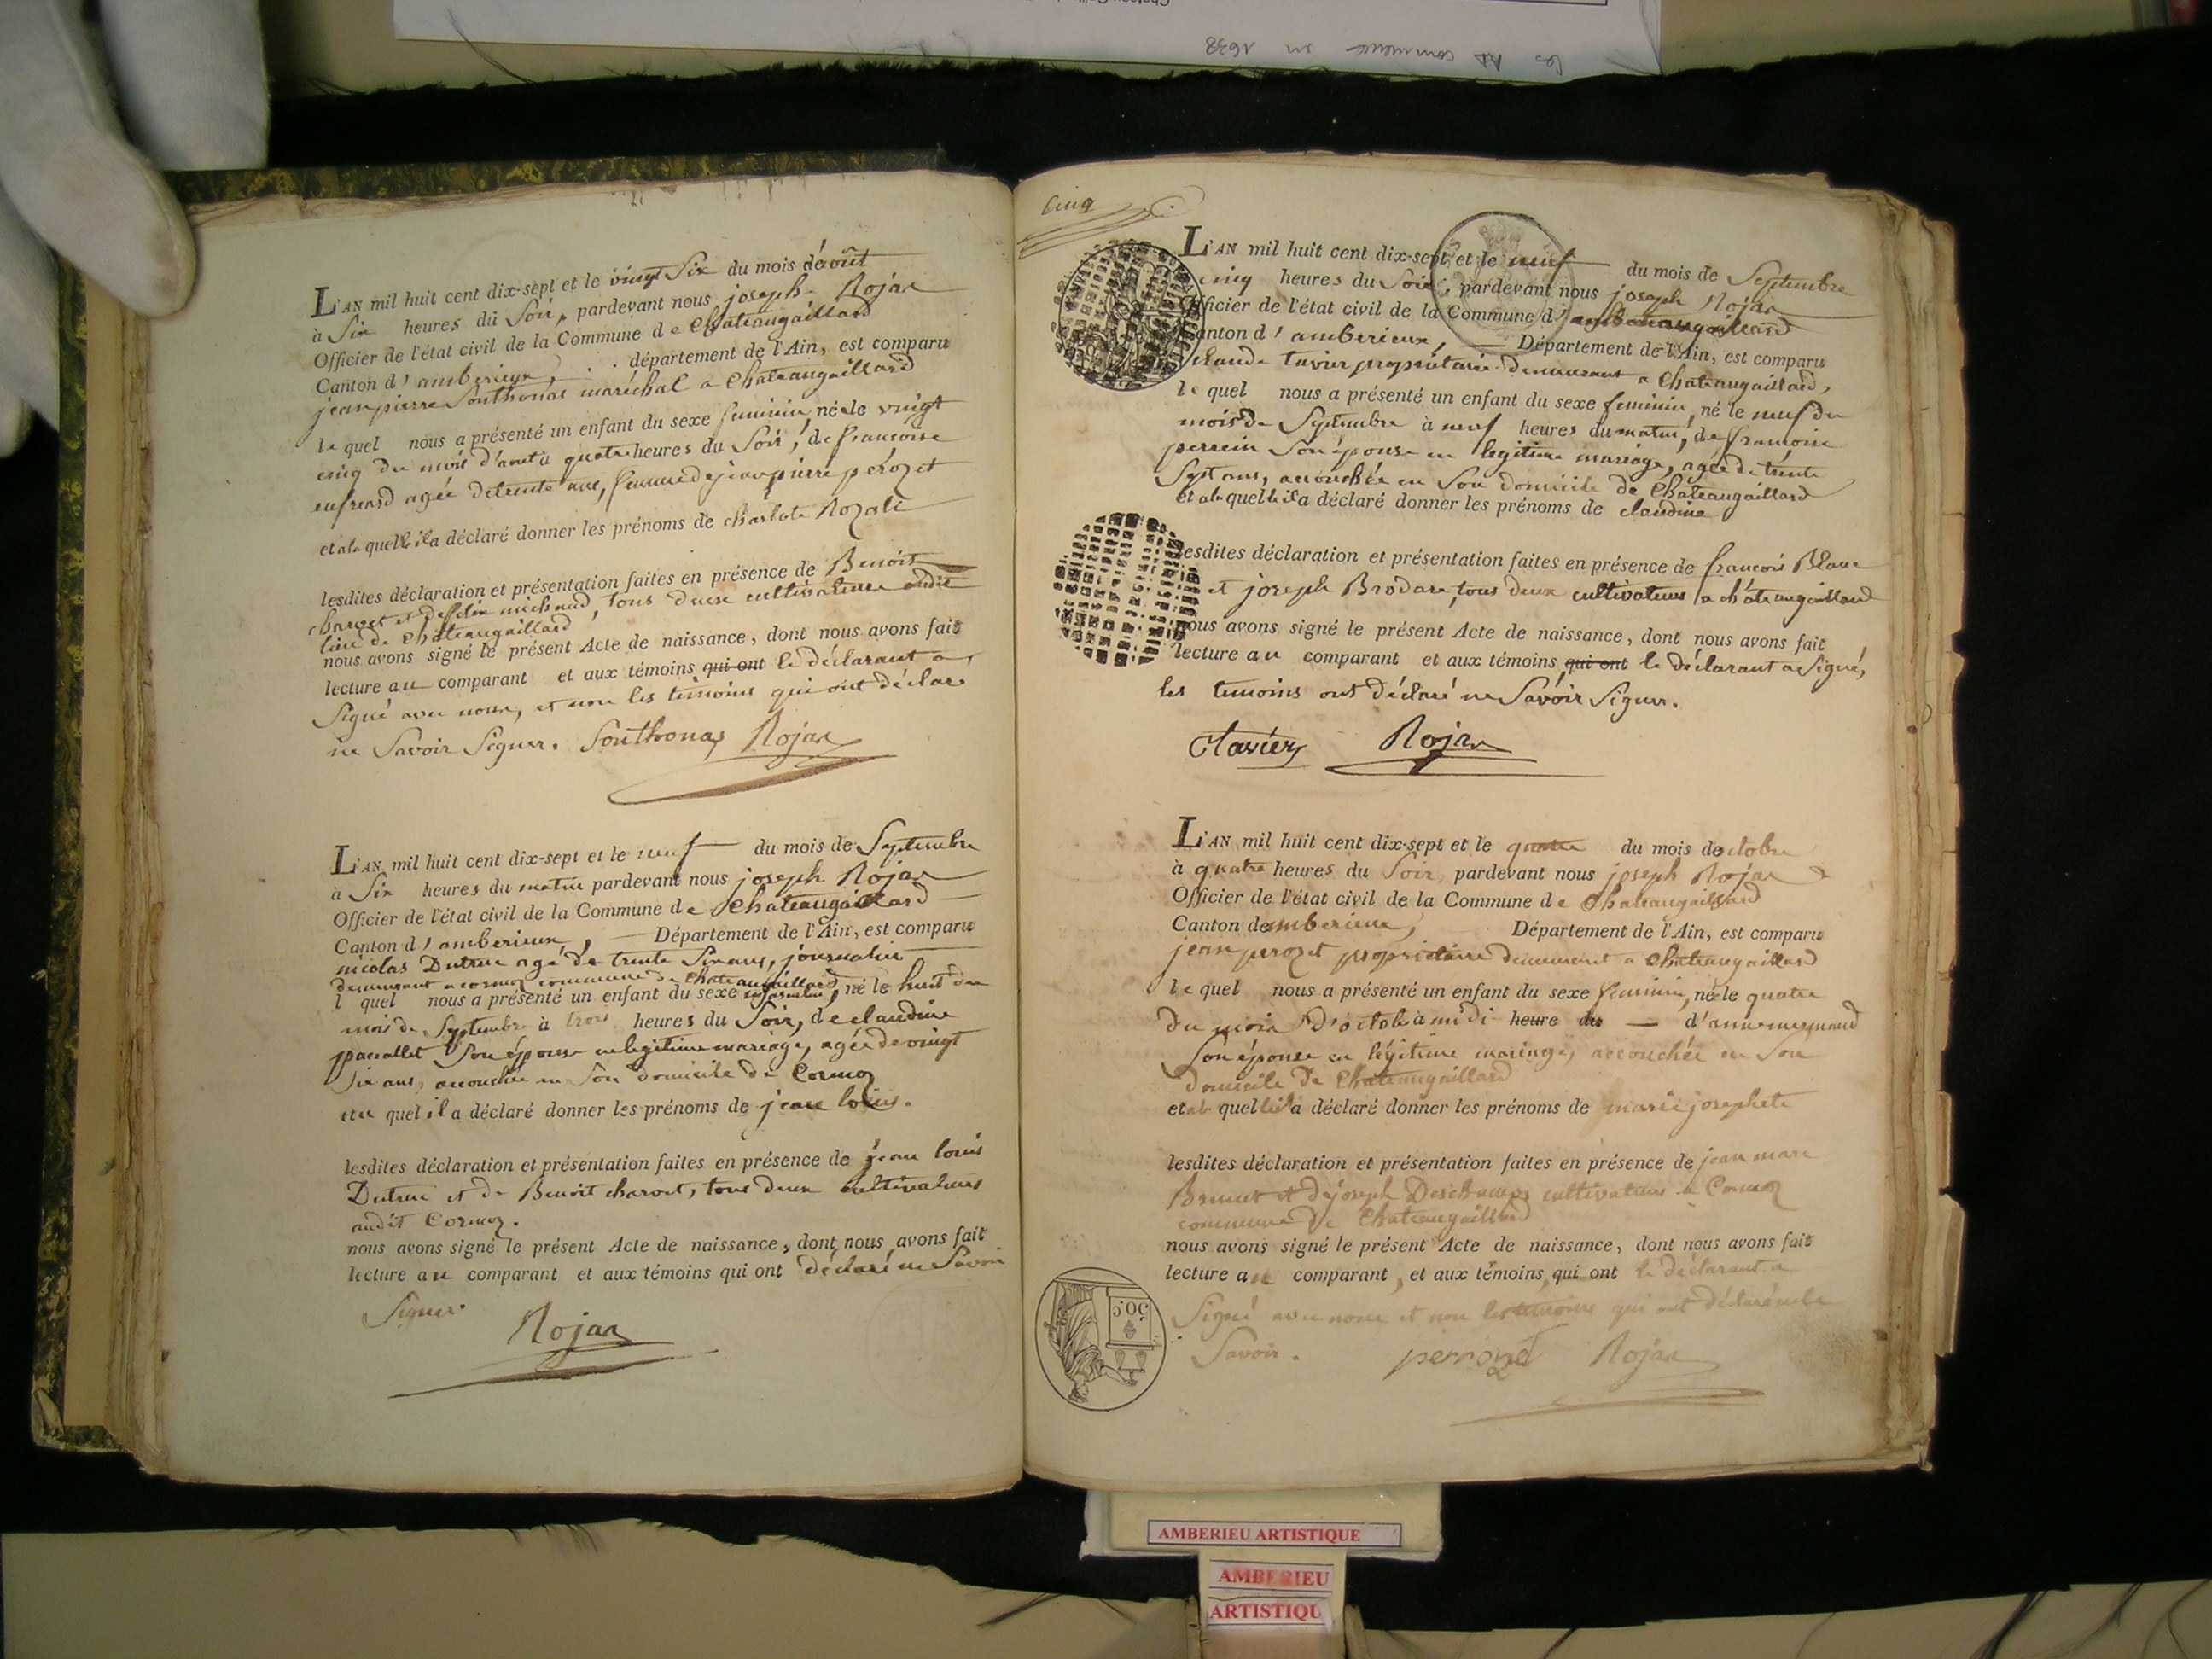 les commence en 1638
L'AN mil huit cent dix-sept et le vingt Six du mois d'août
à Six heures du Soir, pardevant nous joseph Rojar
Officier de l'état civil de la Commune de Chateaugaillard
Canton d'amberieux, département de l'Ain, est comparu
jean pierre Sonthonas maréchal a Chateaugaillard
le quel nous a présenté un enfant du sexe feminin né le vingt
cinq du mois d'aout à quatre heures du Soir, de francoise
agée de trente ans, femme de jean pierre perozet
et a la quelle il a déclaré donner les prénoms de charlote Rozali
lesdites déclaration et présentation faites en présence de Benoit
charvet et michaud, tous deux cultivateurs audit
lieu de Chateaugaillard
nous avons signé le présent Acte de naissance, dont nous avons fait
lecture au comparant et aux témoins qui ont le déclarant a
Signé avec nous, et non les temoins qui ont déclaré
ne Savoir Signer. Sonthonas Rojar
L'AN mil huit cent dix-sept et le neuf du mois de Septembre
à Six heures du matin pardevant nous joseph Rojar
Officier de l'état civil de la Commune de Chateaugaillard
Canton d'amberieux, Département de l'Ain, est comparu
nicolas Dutruc agé de trente Six ans, journalier
demeurant a cormoz commune de Chateaugaillard
l quel nous a présenté un enfant du sexe masculin, né le huit du
mois de Septembre à trois heures du Soir, de claudine
pacallet Son épouse en legitime mariage, agée de vingt
Six ans, accouchée en Son domicile de Cormoz
et au quel il a déclaré donner les prénoms de jean louis.
lesdites déclaration et présentation faites en présence de jean louis
Dutruc et de Benoit charvet, tous deux cultivateurs
audit Cormoz.
nous avons signé le présent Acte de naissance, dont nous avons fait
lecture au comparant et aux témoins qui ont déclaré ne Savoir
Signer.
Rojar
Cinq
L'AN mil huit cent dix-sept et le neuf du mois de Septembre
cinq heures du Soir, pardevant nous joseph Rojar
Officier de l'état civil de la Commune d
Canton d'amberieux, Département de l'Ain, est comparu
claude tavier propriétaire demeurant a Chateaugaillard,
le quel nous a présenté un enfant du sexe feminin, né le neuf du
mois de Septembre à neuf heures du matin, de francoise
perrein Son épouse en legitime mariage, agée de trente
Sept ans, accouchée en Son domicile de Chateaugaillard
et a la quelle il a déclaré donner les prénoms de claudine
lesdites déclaration et présentation faites en présence de francois Blanc
et joseph Brodare, tous deux cultivateurs a châteaugaillard
nous avons signé le présent Acte de naissance, dont nous avons fait
lecture au comparant et aux témoins qui ont le déclarant a Signé,
les temoins ont déclaré ne Savoir Signer.
Ctavier Rojar
L'AN mil huit cent dix-sept et le quatre du mois d'octobre
à quatre heures du Soir, pardevant nous joseph Rojar
Officier de l'état civil de la Commune de Chateaugaillard
Canton d'amberieux, Département de l'Ain, est comparu
jean perozet propriétaire demeurant a Chateaugaillard
le quel nous a présenté un enfant du sexe feminin, née le quatre
du mois d'octobre à midi heure du d'anne
Son épouse en légitime mariage, accouchée en Son
domicile de Chateaugaillard
et a la quelle il a déclaré donner les prénoms de marie josephete
lesdites déclaration et présentation faites en présence de jean marc
Brunet et de joseph Deschamps cultivateurs a Cormoz
commune de Chateaugaillard
nous avons signé le présent Acte de naissance, dont nous avons fait
lecture au comparant, et aux témoins, qui ont le déclarant a
Signé avec nous et non les temoins qui ont déclaré ne le
Savoir. perrozet Rojar
50 C
AMBERIEU ARTISTIQUE
AMBERIEU
ARTISTIQU